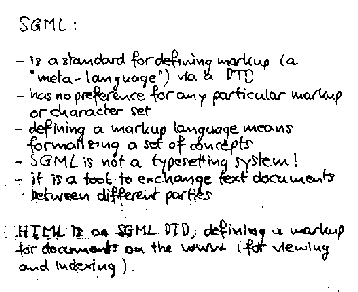 SGML:
- is a standard for defining markup (a
"meta-language") via a DTD
- has no preference for any particular markup
or character set
- defining a markup language means
formalizing a set of concepts
- SGML is not a typesetting system!
- it is a tool to exchange text documents
between different parties
HTML is an SGML DTD, defining a markup
for documents on the www (for viewing
and indexing).